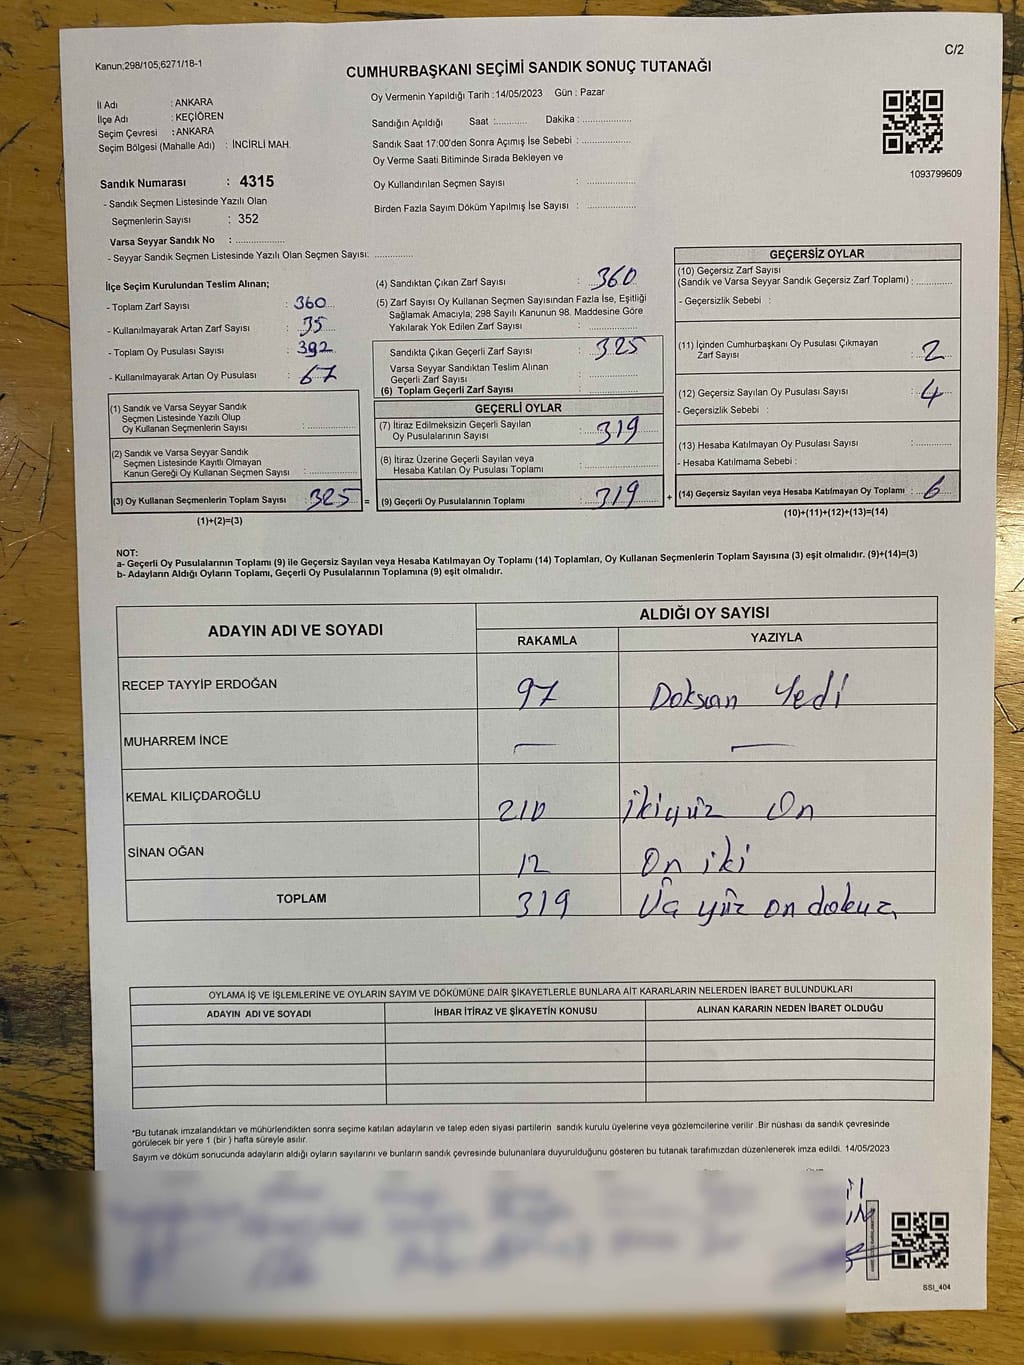 Kanun;298/105,6271/18-1
C/2
CUMHURBAŞKANI SEÇİMİ SANDIK SONUÇ TUTANAĞI
İl Adı : ANKARA
İlçe Adı : KEÇİÖREN
Seçim Çevresi : ANKARA
Seçim Bölgesi (Mahalle Adı) : İNCİRLİ MAH.
Oy Vermenin Yapıldığı Tarih : 14/05/2023 Gün : Pazar
Sandığın Açıldığı Saat :........... Dakika : ..................
Sandık Saat 17:00'den Sonra Açımış İse Sebebi : ..................
Oy Verme Saati Bitiminde Sırada Bekleyen ve
Oy Kullandırılan Seçmen Sayısı : ..................
Birden Fazla Sayım Döküm Yapılmış İse Sayısı : ..................
1093799609
Sandık Numarası : 4315
- Sandık Seçmen Listesinde Yazılı Olan
Seçmenlerin Sayısı : 352
Varsa Seyyar Sandık No : ..................
- Seyyar Sandık Seçmen Listesinde Yazılı Olan Seçmen Sayısı: ..............
İlçe Seçim Kurulundan Teslim Alınan;
- Toplam Zarf Sayısı : 360
- Kullanılmayarak Artan Zarf Sayısı : 35
- Toplam Oy Pusulası Sayısı : 392
- Kullanılmayarak Artan Oy Pusulası : 67
(1) Sandık ve Varsa Seyyar Sandık
Seçmen Listesinde Yazılı Olup
Oy Kullanan Seçmenlerin Sayısı : ..................
(2) Sandık ve Varsa Seyyar Sandık
Seçmen Listesinde Kayıtlı Olmayan
Kanun Gereği Oy Kullanan Seçmen Sayısı : ..................
(3) Oy Kullanan Seçmenlerin Toplam Sayısı : 325 =
(1)+(2)=(3)
(4) Sandıktan Çıkan Zarf Sayısı : 360
(5) Zarf Sayısı Oy Kullanan Seçmen Sayısından Fazla İse, Eşitliği
Sağlamak Amacıyla; 298 Sayılı Kanunun 98. Maddesine Göre
Yakılarak Yok Edilen Zarf Sayısı : ..................
Sandıkta Çıkan Geçerli Zarf Sayısı : 325
Varsa Seyyar Sandıktan Teslim Alınan
Geçerli Zarf Sayısı : ..................
(6) Toplam Geçerli Zarf Sayısı : ..................
GEÇERLİ OYLAR
(7) İtiraz Edilmeksizin Geçerli Sayılan
Oy Pusulalarının Sayısı : 319
(8) İtiraz Üzerine Geçerli Sayılan veya
Hesaba Katılan Oy Pusulası Toplamı : ..................
(9) Geçerli Oy Pusulalarının Toplamı : 319 +
GEÇERSİZ OYLAR
(10) Geçersiz Zarf Sayısı
(Sandık ve Varsa Seyyar Sandık Geçersiz Zarf Toplamı) : ............
- Geçersizlik Sebebi :
(11) İçinden Cumhurbaşkanı Oy Pusulası Çıkmayan
Zarf Sayısı : 2
(12) Geçersiz Sayılan Oy Pusulası Sayısı : 4
- Geçersizlik Sebebi :
(13) Hesaba Katılmayan Oy Pusulası Sayısı : ............
- Hesaba Katılmama Sebebi :
(14) Geçersiz Sayılan veya Hesaba Katılmayan Oy Toplamı : 6
(10)+(11)+(12)+(13)=(14)
NOT:
a- Geçerli Oy Pusulalarının Toplamı (9) ile Geçersiz Sayılan veya Hesaba Katılmayan Oy Toplamı (14) Toplamları, Oy Kullanan Seçmenlerin Toplam Sayısına (3) eşit olmalıdır. (9)+(14)=(3)
b- Adayların Aldığı Oyların Toplamı, Geçerli Oy Pusulalarının Toplamına (9) eşit olmalıdır.
ADAYIN ADI VE SOYADI
ALDIĞI OY SAYISI
RAKAMLA YAZIYLA
RECEP TAYYİP ERDOĞAN 97 Doksan Yedi
MUHARREM İNCE — —
KEMAL KILIÇDAROĞLU 210 İkiyüz On
SİNAN OĞAN 12 On iki
TOPLAM 319 Üç yüz on dokuz
OYLAMA İŞ VE İŞLEMLERİNE VE OYLARIN SAYIM VE DÖKÜMÜNE DAİR ŞİKAYETLERLE BUNLARA AİT KARARLARIN NELERDEN İBARET BULUNDUKLARI
ADAYIN ADI VE SOYADI İHBAR İTİRAZ VE ŞİKAYETİN KONUSU ALINAN KARARIN NEDEN İBARET OLDUĞU
*Bu tutanak imzalandıktan ve mühürlendikten sonra seçime katılan adayların ve talep eden siyasi partilerin sandık kurulu üyelerine veya gözlemcilerine verilir .Bir nüshası da sandık çevresinde
görülecek bir yere 1 (bir ) hafta süreyle asılır.
Sayım ve döküm sonucunda adayların aldığı oyların sayılarını ve bunların sandık çevresinde bulunanlara duyurulduğunu gösteren bu tutanak tarafımızdan düzenlenerek imza edildi. 14/05/2023
SSI_404